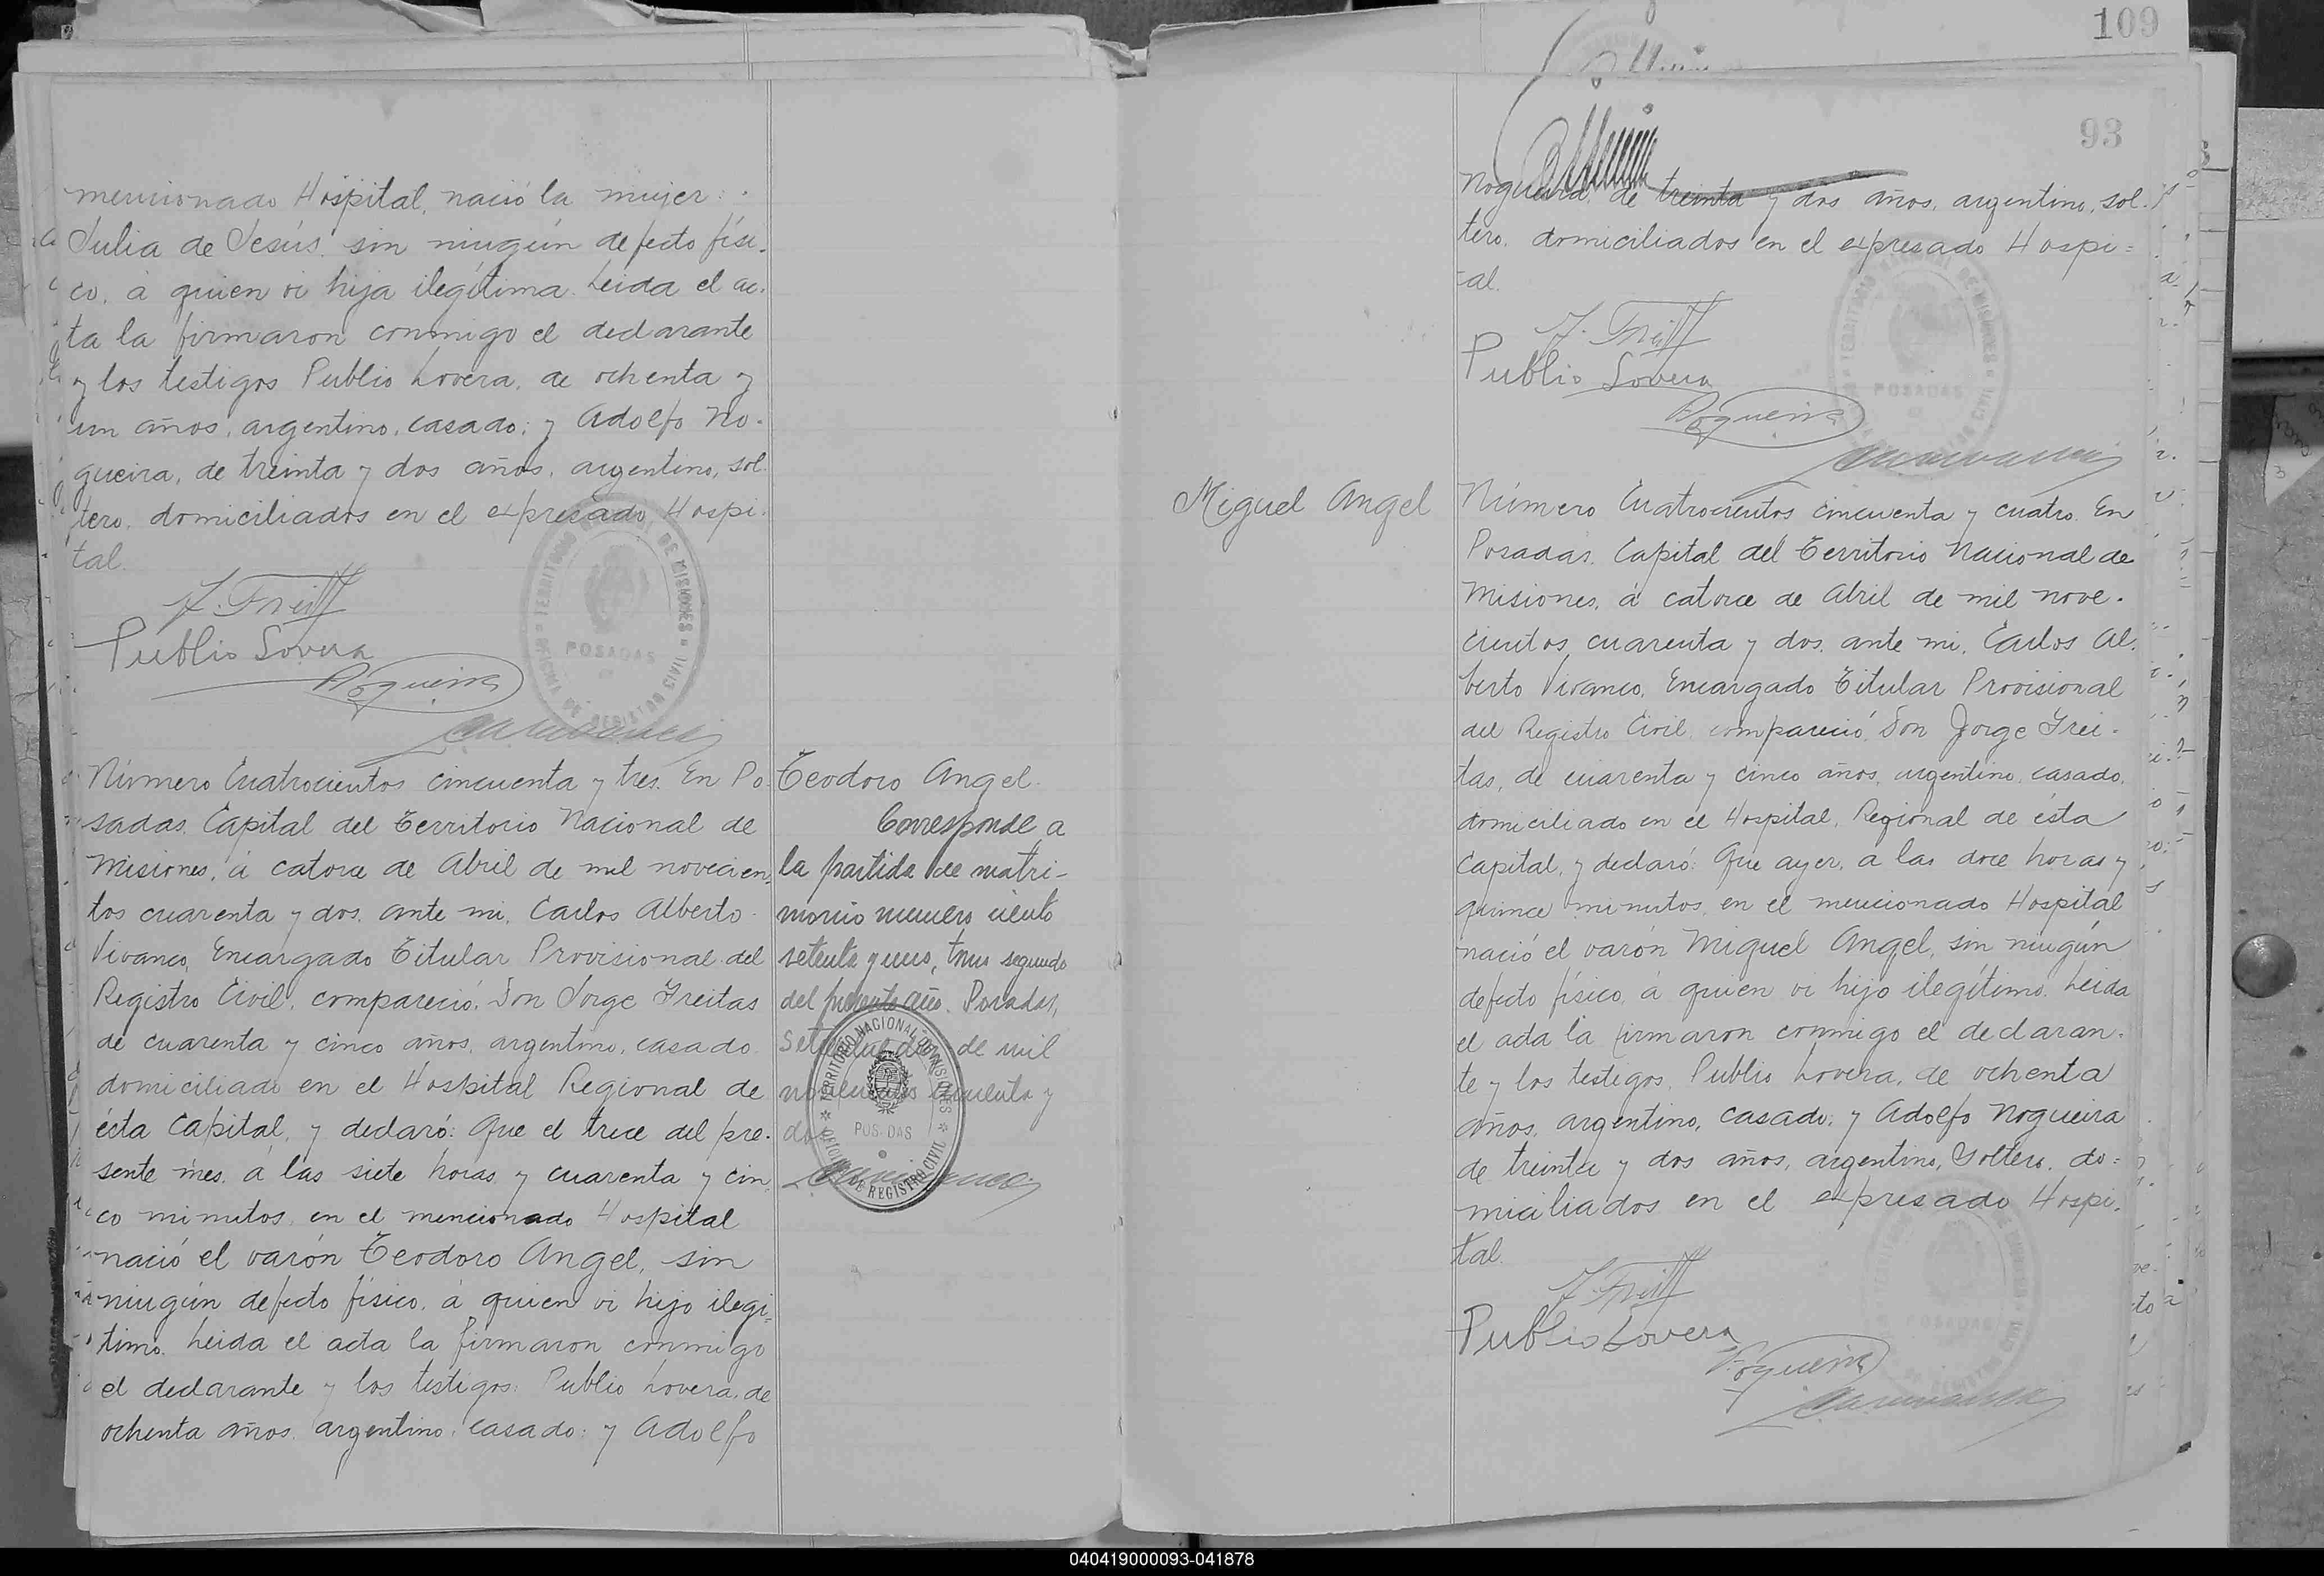 mencionado Hospital, nació la mujer:
Julia de Jesús, sin ningún defecto físi-
co, á quien vi hija ilegítima. Leida el ac-
ta la firmaron conmigo el declarante
y los testigos Publio Lovera, de ochenta y
un años, argentino, casado; y Adolfo No-
gueira, de treinta y dos años, argentino, sol-
tero, domiciliados en el expresado Hospi-
tal.
J. Freitas
Publio Lovera
Nogueira
TERRITORIO NACIONAL DE MISIONES
POSADAS
OFICINA DE REGISTRO CIVIL
Número Cuatrocientos cincuenta y tres. En Po-
sadas, Capital del Territorio Nacional de
Misiones, á catorce de Abril de mil novecien-
tos cuarenta y dos, ante mi, Carlos Alberto
Vivanco, Encargado Titular Provisional del
Registro Civil, compareció, Don Jorge Freitas
de cuarenta y cinco años, argentino, casado
domiciliado en el Hospital Regional de
ésta Capital, y declaró: Que el trece del pre-
sente mes, á las siete horas y cuarenta y cin-
co minutos, en el mencionado Hospital
nació el varón Teodoro Angel, sin
ningún defecto físico, á quien vi hijo ilegí-
timo. Leida el acta la firmaron conmigo
el declarante y los testigos: Publio Lovera, de
ochenta años, argentino, casado; y Adolfo
Teodoro Angel.
Corresponde a
la partida de matri-
monio numero ciento
setenta y uno, tomo segundo
del presente año. Posadas,
Setiembre de mil
novecientos cuarenta y
dos
TERRITORIO NACIONAL DE MISIONES
POSADAS
OFICINA DE REGISTRO CIVIL
109
93
Nogueira, de treinta y dos años, argentino, sol-
tero, domiciliados en el expresado Hospi-
tal.
J. Freitas
Publio Lovera
Nogueira
TERRITORIO NACIONAL DE MISIONES
POSADAS
Miguel Angel
Número Cuatrocientos cincuenta y cuatro. En
Posadas, Capital del Territorio Nacional de
Misiones, á catorce de Abril de mil nove-
cientos cuarenta y dos, ante mi, Carlos Al-
berto Vivanco, Encargado Titular Provisional
del Registro Civil, compareció, Don Jorge Frei-
tas, de cuarenta y cinco años, argentino, casado,
domiciliado en el Hospital, Regional de ésta
Capital, y declaró: Que ayer, á las doce horas y
quince minutos, en el mencionado Hospital
nació el varón Miguel Angel, sin ningún
defecto físico, á quien vi hijo ilegítimo. Leida
el acta la firmaron conmigo el declaran-
te y los testigos, Publio Lovera, de ochenta
años, argentino, casado; y Adolfo Nogueira
de treinta y dos años, argentino, Soltero, do-
miciliados en el expresado Hospi-
tal.
J. Freitas
Publio Lovera
Nogueira
POSADAS
040419000093-041878